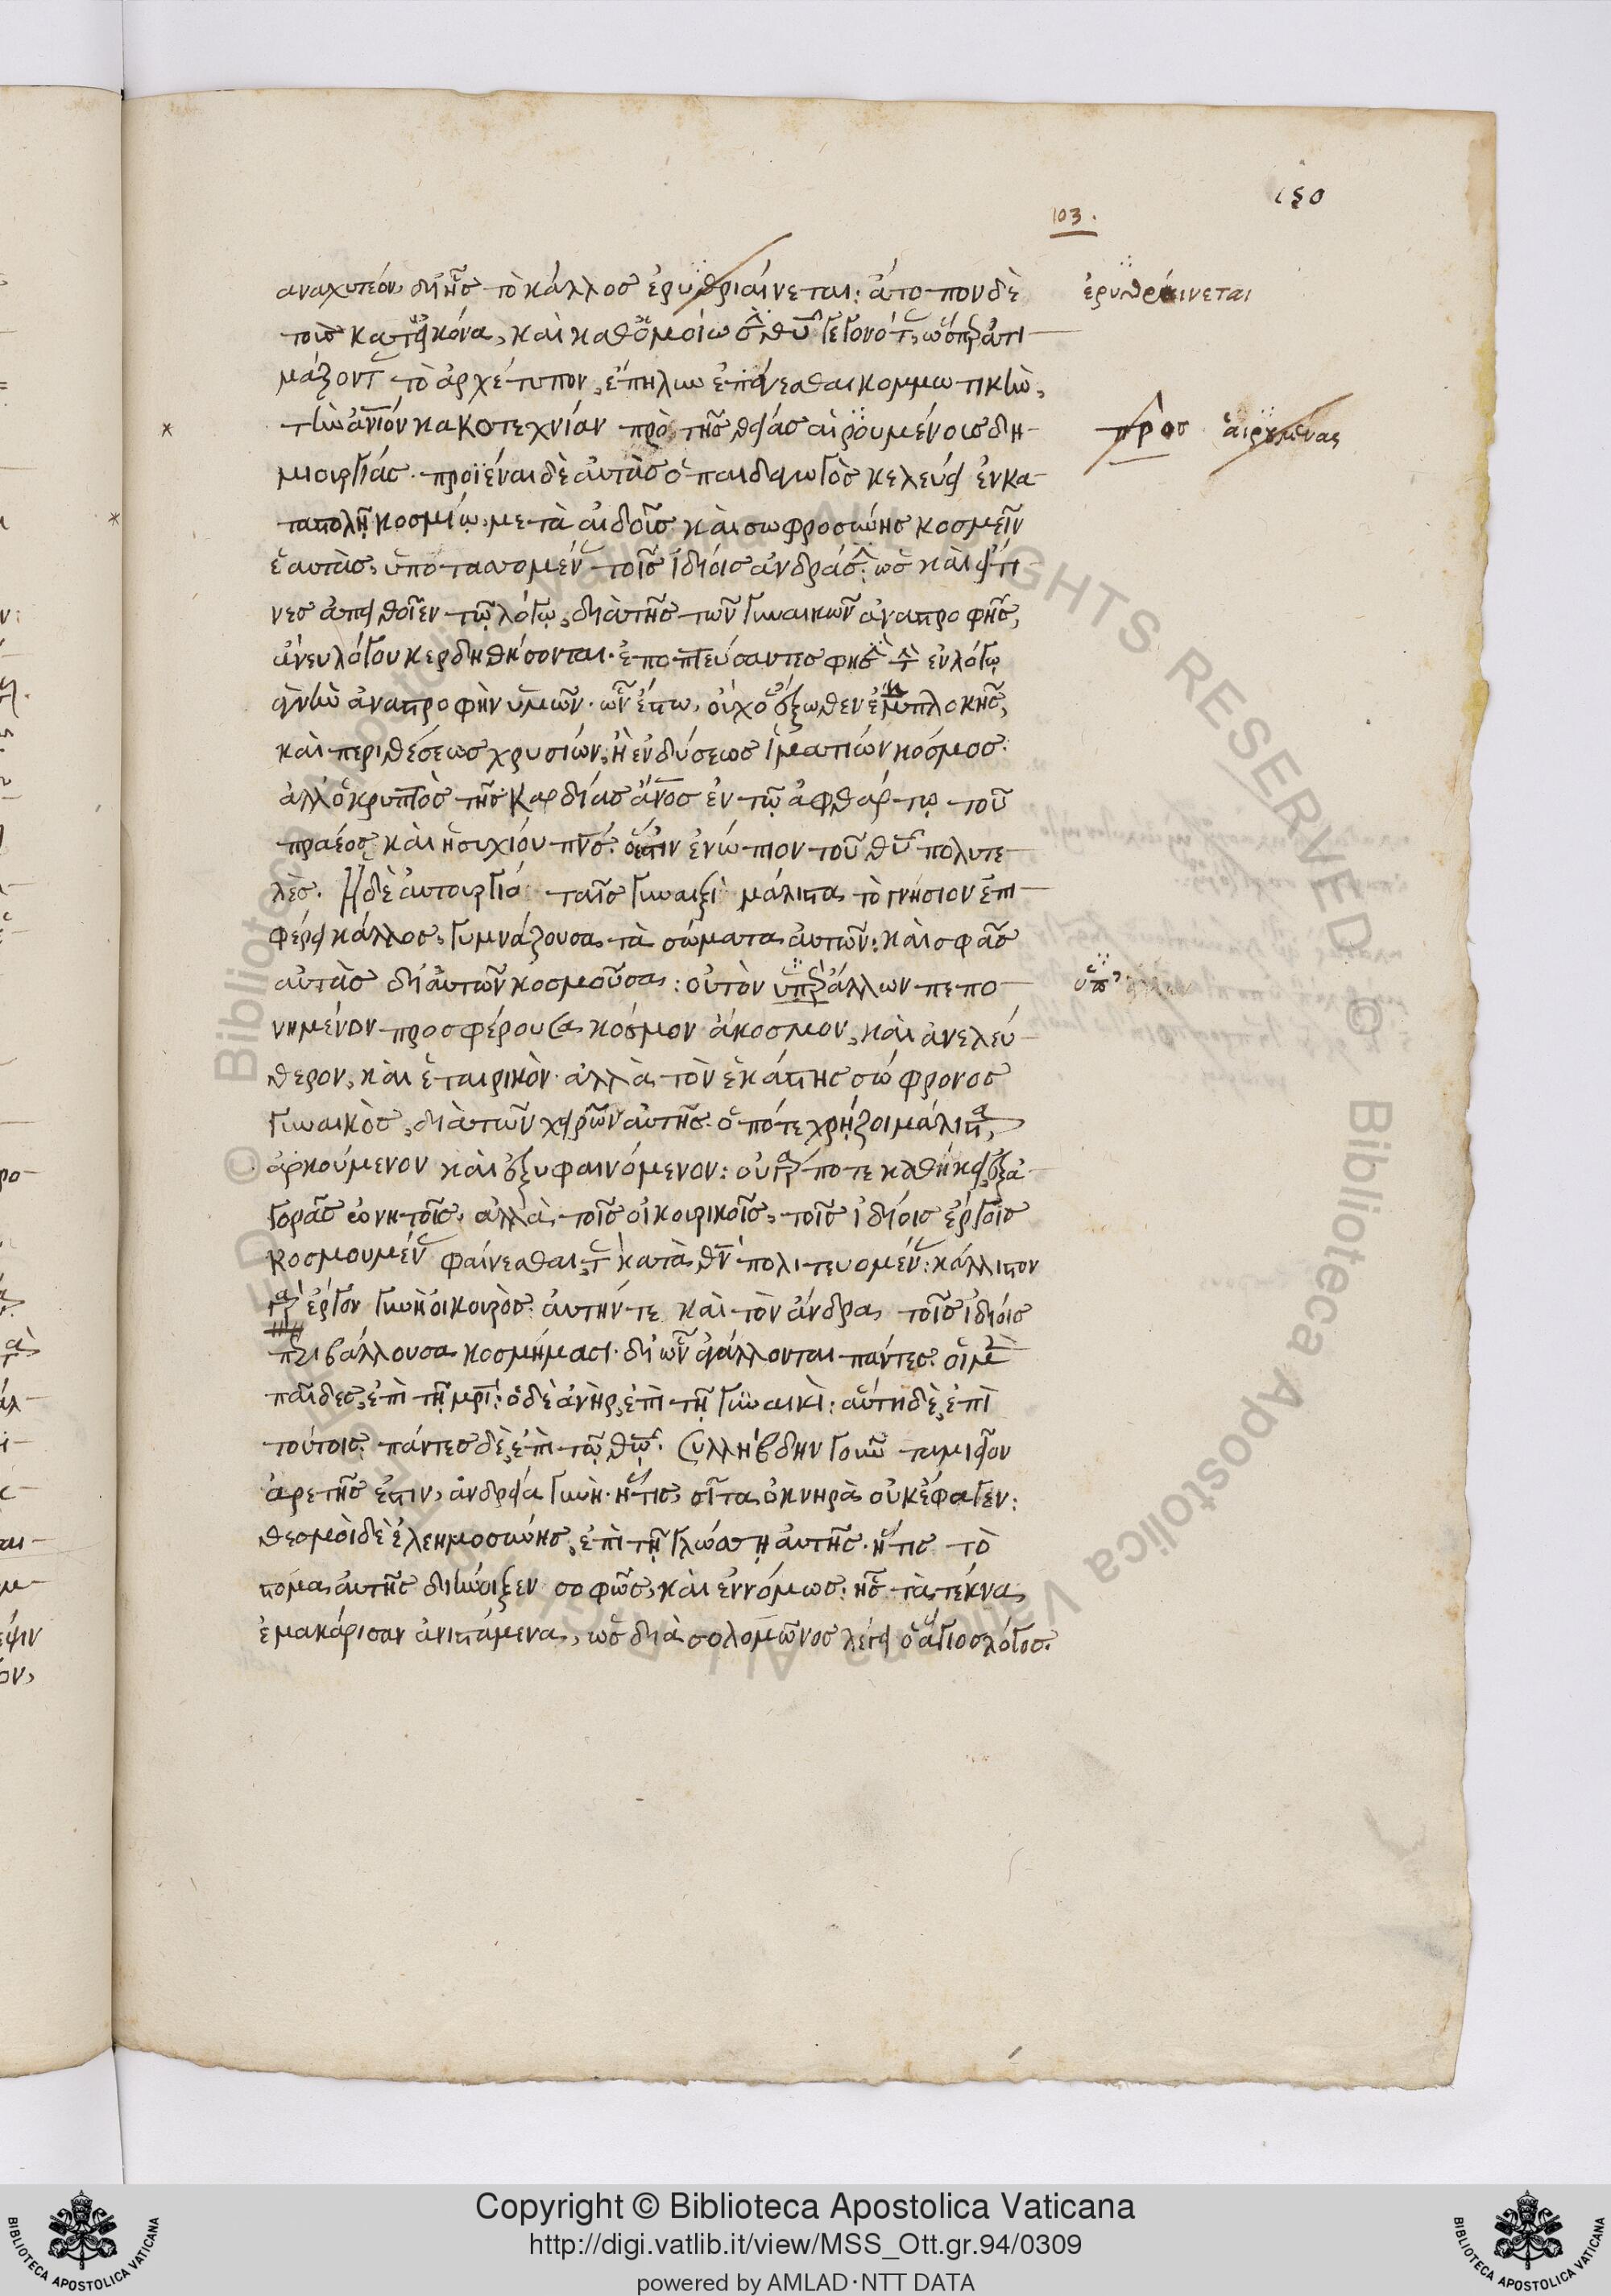 ιξο
103.
αναχυτέον, δι' ἧς τὸ κάλλος ἐρυθριαίνεται: ἄτοπον δὲ
ἐρυθραίνεται
τοὺς κατ' εἰκόνα, καὶ καθ' ὁμοίωσιν θυ γεγονότας, ὥσπερ ἀτι-
μάζοντας τὸ ἀρχέτυπον, ἐπήλυν ἐπάγεσθαι κομμωτικὴν,
τὴν ἀνιον κακοτεχνίαν πρὸ τῆς θείας αἱρουμένοις δη-
προς αἱρουμένας
μιουργίας. προϊέναι δὲ αὐτὰς ὁ παιδαγωγὸς κελεύει ἐν κα-
ταστολῇ κοσμίῳ, μετὰ αἰδοῦς καὶ σωφροσύνης κοσμεῖν
ἑαυτὰς, ὑποτασσομένας τοῖς ἰδίοις ἀνδράσιν: ὡς καὶ εἴ τι-
νες ἀπειθοῖεν τῷ λόγῳ, διὰ τῆς τῶν γυναικῶν ἀναστροφῆς,
ἄνευ λόγου κερδηθήσονται. ἐποπτεύσαντες φησὶ τὴν ἐν λόγῳ
ἁγνὴν ἀναστροφὴν ὑμῶν. ὧν ἔστω, οὐχ ὁ ἔξωθεν ἐμπλοκῆς,
καὶ περιθέσεως χρυσίων, ἢ ἐνδύσεως ἱματίων κόσμος.
ἀλλ' ὁ κρυπτὸς τῆς καρδίας ἄνος ἐν τῷ ἀφθάρτῳ τοῦ
πραέος καὶ ἡσυχίου πνς. ὅ ἐστιν ἐνώπιον τοῦ θυ πολυτε-
λές. Ἡ δὲ αὐτουργία ταῖς γυναιξὶ μάλιστα τὸ γνήσιον ἐπι-
φέρει κάλλος, γυμνάζουσα τὰ σώματα αὐτῶν: καὶ σφᾶς
αὐτὰς δι' αὐτῶν κοσμοῦσα: οὐ τὸν ὑπὲρ ἄλλων πεπο-
ὑπ'
νημένον προσφέρουσα κόσμον ἄκοσμον, καὶ ἀνελεύ-
θερον, καὶ ἑταιρικὸν. ἀλλὰ τὸν ἑκάστης σώφρονος
γυναικὸς, διὰ τῶν χειρῶν αὐτῆς. ὁπότε χρῄζοι μάλιστα,
ἀρκούμενον καὶ ἐξυφαινόμενον: οὐ γάρ ποτε καθήκει, ἐξ ἀ-
γορᾶς ὠνητοῖς, ἀλλὰ τοῖς οἰκουρικοῖς, τοῖς ἰδίοις ἔργοις
κοσμουμένας φαίνεσθαι, τὰς κατὰ θν πολιτευομένας: κάλλιστον
γὰρ ἔργον γυνὴ οἰκουρὸς. αὑτήν τε καὶ τὸν ἄνδρα, τοῖς ἰδίοις
περιβάλλουσα κοσμήμασι. δι' ὧν ἀγάλλονται πάντες. οἱ μὲν
παῖδες, ἐπὶ τῇ μρι: ὁ δὲ ἀνὴρ, ἐπὶ τῇ γυναικὶ: αὕτη δὲ, ἐπὶ
τούτοις. πάντες δὲ, ἐπὶ τῷ θῳ. Συλλήβδην γοῦν ταμιεῖον
ἀρετῆς ἐστιν, ἀνδρεία γυνὴ. ἥτις, σῖτα ὀκνηρὰ οὐκ ἔφαγεν:
θεσμοὶ δὲ ἐλεημοσύνης, ἐπὶ τῇ γλώσσῃ αὐτῆς. ἥτις τὸ
στόμα αὐτῆς διήνοιξεν σοφῶς, καὶ ἐννόμως: ἧς τὰ τέκνα,
ἐμακάρισαν ἀνιστάμενα, ὡς διὰ σολομῶνος λέγει ὁ ἅγιος λόγος.
Copyright © Biblioteca Apostolica Vaticana
http://digi.vatlib.it/view/MSS_Ott.gr.94/0309
powered by AMLAD·NTT DATA